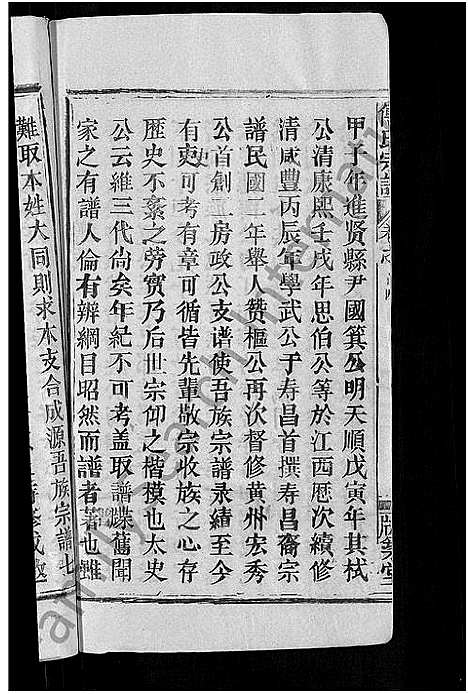 甲子年進贤縣尹國箕公明天順戊寅年其栻
公清康熙壬戌年思伯公等於江西厯次續修
清咸豐丙辰年學武公于寿昌首撰寿昌裔宗
譜民國二年举人赞樞公再次督修黄州宏秀
公首創二房政公支谱使吾族宗譜永續至今
有吏可考有章可循皆先輩敬宗收族之心存
史
歷史不紊之劳實乃后世宗仰之楷模也太史
公云維三代尚矣年紀不可考盖取譜牒舊聞
家之有譜人倫有辨綱目昭然而譜者著也雖
難取本姓大同則求本支合成源吾族宗譜七